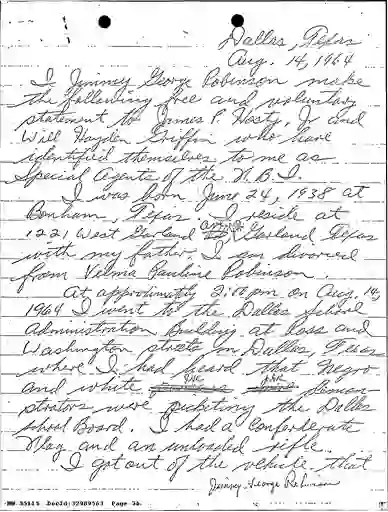 Dallas, Texas
Aug. 14, 1964
I Jimmy George Robinson make
the following free and voluntary
statement to James P. Hosty, Jr and
Will Hayden Griffin who have
identified themselves to me as
Special Agents of the F.B.I.
I was born June 24, 1938 at
Bonham, Texas. I reside at
1221 West Garland Garland, Texas
with my father. I am divorced
from Velma Pauline Robinson.
At approximatly 2:00 pm on Aug. 14,
1964 I went to the Dallas School
Administration Building at Ross and
Washington streets in Dallas, Texas
where I had heard that Negro
and white demon
strators were picketing the Dallas
School Board. I had a Confederate
Flag and an unloaded rifle.
I got out of the vehicle that
Jimmy George Robinson
DocId:32989563 Page 56